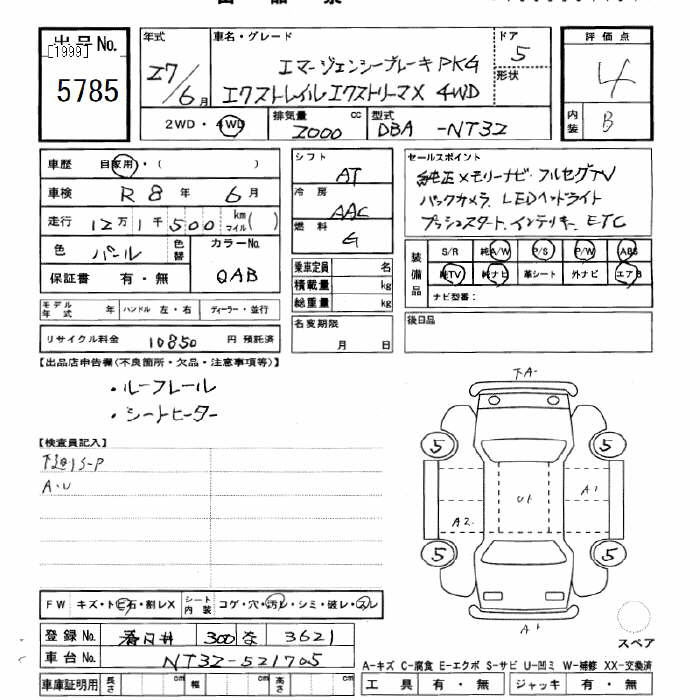 出品No.
[1999]
5785
年式
27/6月
車名・グレード
エマージェンシーブレーキPKG
エクストレイルエクストリーマX 4WD
ドア
5
形状
評価点
4
内装
B
2WD・4WD
排気量 cc
2000
型式
DBA -NT32
車歴 自家用・( )
車検 R8年 6月
走行 12万1千500 km マイル( )
色 パール 色替
カラーNo.
QAB
保証書 有・無
シフト
AT
冷房
AAC
燃料
G
乗車定員 名
積載量 kg
総重量 kg
名変期限
月 日
セールスポイント
純正メモリーナビ・フルセグTV
バックカメラ LEDヘッドライト
プッシュスタート、インテリキー、ETC
装備品
S/R 純A/W P/S P/W ABS
純TV 純ナビ 革シート 外ナビ エアB
ナビ型番:
後日品
モデル年式 年 ハンドル 左・右 ディーラー・並行
リサイクル料金 10850 円 預託済
【出品店申告欄(不良箇所・欠品・注意事項等)】
・ルーフレール
・シートヒーター
【検査員記入】
A・U
下A-
5
5
A1
U1
A2
5
5
A1
スペア
FW キズ・トビ石・割レX シート内装 コゲ・穴・汚レ・シミ・破レ・スレ
登録No. 春日井 300 な 3621
車台No. NT32-521705
車庫証明用 長さ cm 幅 cm 高さ cm
A-キズ C-腐食 E-エクボ S-サビ U-凹ミ W-補修 XX-交換済
工具 有・無 ジャッキ 有・無